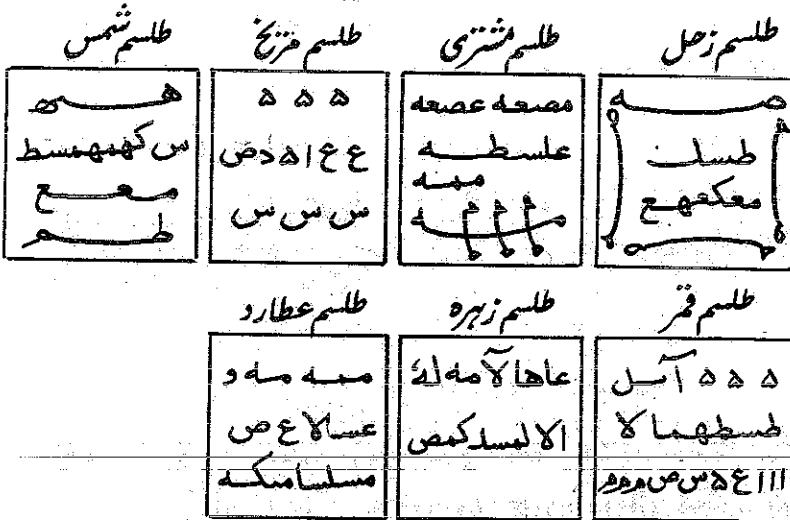 طلسم زحل
صـــه
طسلت
معکعهـع
طلسم مشتری
مصعه عصعه
علسطـه
ممـه
طلسم مریخ
۵ ۵ ۵
ع ع ا ۵ د ص
س س س
طلسم شمس
هـــه
س کهیهمسط
مـعـــع
طـــم
طلسم قمر
۵ ۵ ۵ آسل
طسطهمالا
ااا ع ۵ س ص م م م
طلسم زهره
عاها لآ مه لهٔ
الا لمسد کمص
طلسم عطارد
ممـه مـه و
عسالا ع ص
مسلسا مکـه